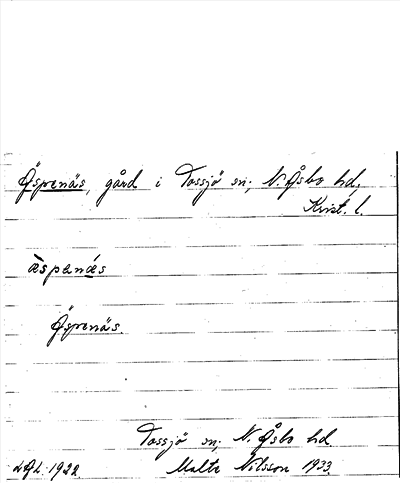 Öspenäs, gård i Tossjö sn, N. Åsbo hd,
Krist. l.
æ̀spənǽs
Öspenäs.
Tossjö sn, N. Åsbo hd
Malte Nilsson 1933.
1922